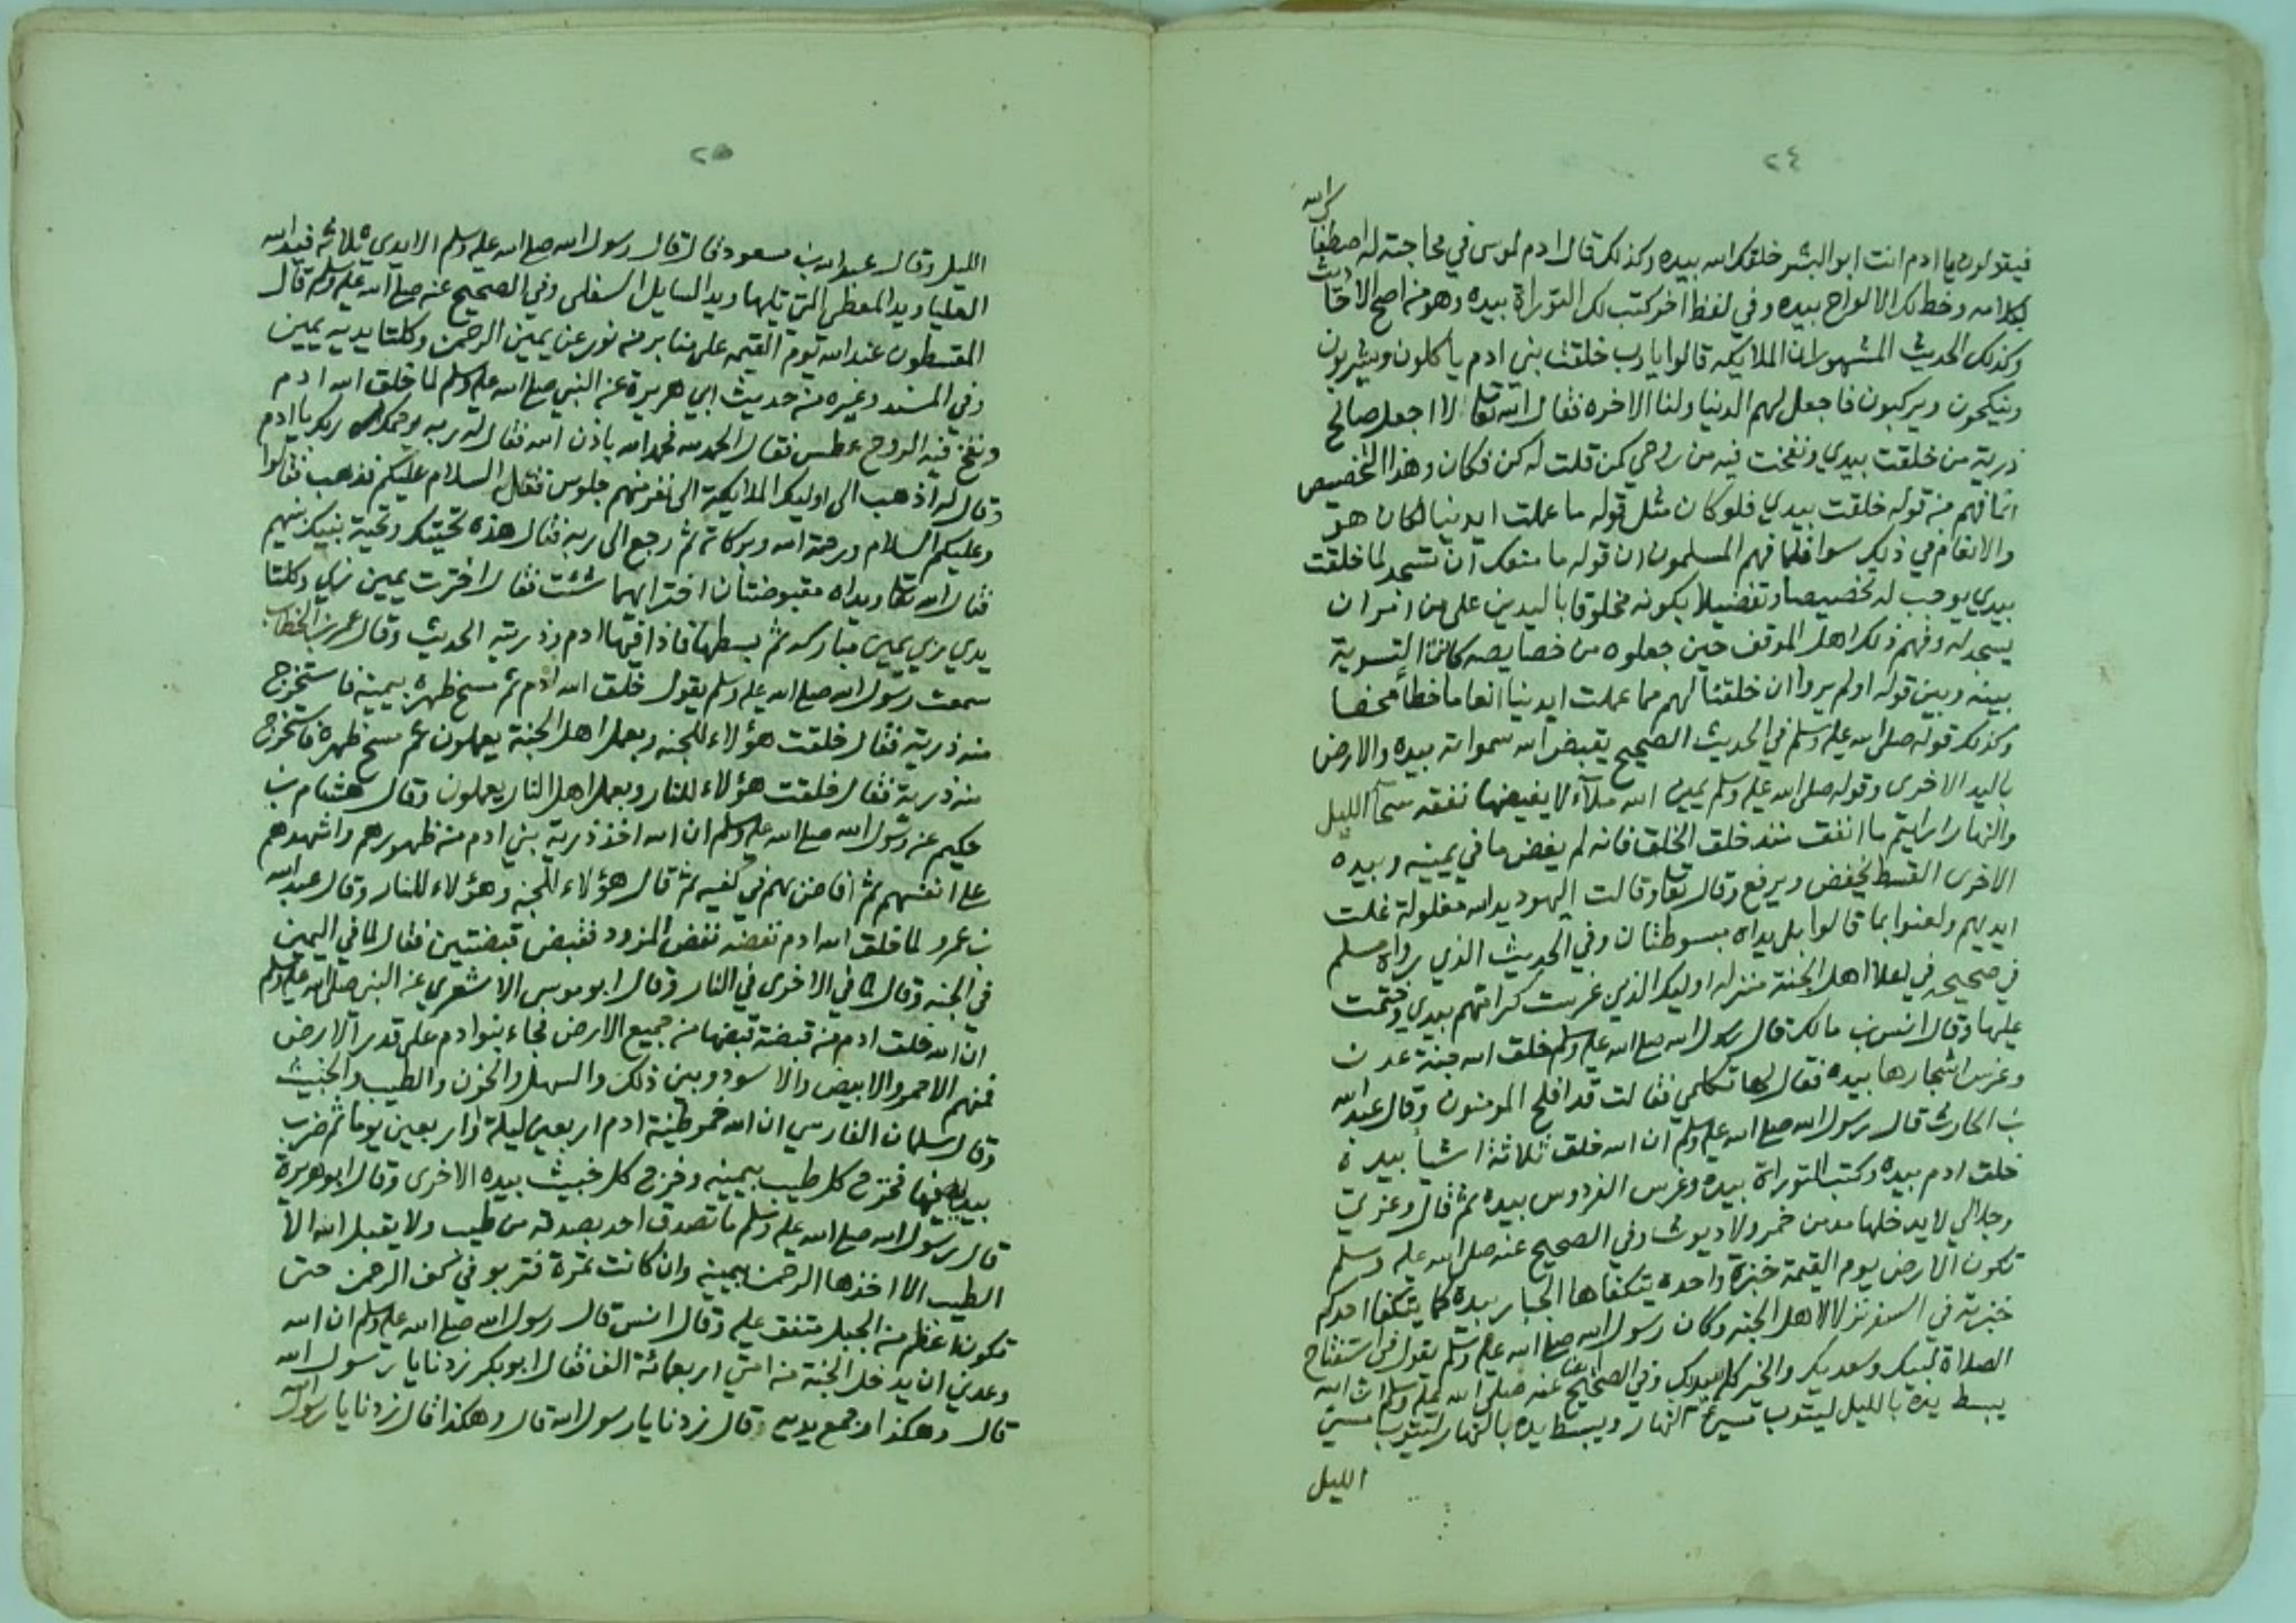 ٢٤
فيقولون يا ادم انت ابو البشر خلقك الله بيده وكذلك قال ادم لموسى في محاجته له اصطفاك الله
بكلامه وخط لك الالواح بيده وفي لفظ اخر كتب لك التوراة بيده وهو من اصح الاحاديث
وكذلك الحديث المشهور ان الملايكة قالوا يا رب خلقت بني ادم ياكلون ويشربون
وينكحون ويركبون فاجعل لهم الدنيا ولنا الاخره فقال الله تعالى لا اجعل صالح
ذرية من خلقت بيدي ونفخت فيه من روحي كمن قلت له كن فكان وهذا التخصيص
انما فهم من قوله خلقت بيدي فلو كان مثل قوله ما عملت ايدينا لكان هو
والانعام في ذلك سوا فلما فهم المسلمون ان قوله ما منعك ان تسجد لما خلقت
بيدي يوجب له تخصيصا وتفضيلا بكونه مخلوقا باليدين على من امر ان
يسجد له وفهم ذلك اهل الموقف حين جعلوه من خصايصه كانت التسوية
بينه وبين قوله اولم يروا ان خلقنا لهم مما عملت ايدينا انعاما خطأ محضا
وكذلك قوله صلى الله عليه وسلم في الحديث الصحيح يقبض الله سمواته بيده والارض
باليد الاخرى وقوله صلى الله عليه وسلم يمين الله ملآء لا يغيضها نفقه سحآ الليل
والنهار ارايتم ما انفق منذ خلق الخلق فانه لم يغض ما في يمينه وبيده
الاخرى القسط يخفض ويرفع وقال تعالى وقالت اليهود يد الله مغلولة غلت
ايديهم ولعنوا بما قالوا بل يداه مبسوطتان وفي الحديث الذي رواه مسلم
في صحيحه في اعلا اهل الجنة منزله اوليك الذين غرست كرامتهم بيدي وختمت
عليها وقال انس بن مالك قال رسول الله صلى الله عليه وسلم خلق الله جنة عدن
وغرس اشجارها بيده فقال لها تكلمي فقالت قد افلح المومنون وقال عبد الله
بن الحارث قال رسول الله صلى الله عليه وسلم ان الله خلق ثلاثة اشيا بيده
خلق ادم بيده وكتب التوراة بيده وغرس الفردوس بيده ثم قال وعزتي
وجلالي لا يدخلها مدمن خمر ولا ديوث وفي الصحيح عنه صلى الله عليه وسلم
تكون الارض يوم القيمة خبزة واحدة يتكفاها الجبار بيده كما يتكفا احدكم
خبزته في السفر نزلا لاهل الجنه وكان رسول الله صلى الله عليه وسلم يقول في استفتاح
الصلاة لبيك وسعديك والخير كله بيديك وفي الصحيح ايضا عنه صلى الله عليه وسلم ان الله
يبسط يده بالليل ليتوب مسيء النهار ويبسط يده بالنهار ليتوب مسيء
الليل
٢٥
الليل وقال عبد الله بن مسعود قال قال رسول الله صلى الله عليه وسلم الايدي ثلاثة فيد الله
العليا ويد المعطي التي تليها ويد السايل السفلى وفي الصحيح عنه صلى الله عليه وسلم قال
المقسطون عند الله يوم القيمه على منابر من نور عن يمين الرحمن وكلتا يديه يمين
وفي المسند وغيره من حديث ابي هريرة عن النبي صلى الله عليه وسلم لما خلق الله ادم
ونفخ فيه الروح عطس فقال الحمد لله فحمد الله باذن الله فقال له ربه يرحمك ربك يا ادم
وقال له اذهب الى اوليك الملايكة الى نفر منهم جلوس فقل السلام عليكم فذهب فقالوا
وعليكم السلام ورحمة الله وبركاته ثم رجع الى ربه فقال هذه تحيتك وتحية بنيك بينهم
فقال الله تعالى ويداه مقبوضتان اختر ايهما شئت فقال اخترت يمين ربي وكلتا
يدي ربي يمين مباركه ثم بسطها فاذا فيها ادم وذريته الحديث وقال عمر بن الخطاب
سمعت رسول الله صلى الله عليه وسلم يقول خلق الله ادم ثم مسح ظهره بيمينه فاستخرج
منه ذريته فقال خلقت هؤلاء للجنه وبعمل اهل الجنة يعملون ثم مسح ظهره فاستخرج
منه ذرية فقال خلقت هؤلاء للنار وبعمل اهل النار يعملون وقال هشام بن
حكيم عن رسول الله صلى الله عليه وسلم ان الله اخذ ذرية بني ادم من ظهورهم واشهدهم
على انفسهم ثم افاض بهم في كفيه ثم قال هؤلاء للجنه وهؤلاء للنار وقال عبد الله
بن عمرو لما خلق الله ادم نفضه نفض المزود فقبض قبضتين فقال لما في اليمين
في الجنه وقال لما في الاخرى في النار وقال ابو موسى الاشعري عن النبي صلى الله عليه وسلم
ان الله خلق ادم من قبضة قبضها من جميع الارض فجاء بنو ادم على قدر الارض
فمنهم الاحمر والابيض والاسود وبين ذلك والسهل والحزن والطيب والخبيث
وقال سلمان الفارسي ان الله خمر طينة ادم اربعين ليلة او اربعين يوما ثم ضرب
بيده فيها فخرج كل طيب بيمينه وخرج كل خبيث بيده الاخرى وقال ابو هريرة
قال رسول الله صلى الله عليه وسلم ما تصدق احد بصدقه من طيب ولا يقبل الله الا
الطيب الا اخذها الرحمن بيمينه وان كانت تمرة فتربو في كف الرحمن حتى
تكون اعظم من الجبل متفق عليه وقال انس قال رسول الله صلى الله عليه وسلم ان الله
وعدني ان يدخل الجنة من امتي اربعمائة الف فقال ابو بكر زدنا يا رسول الله
قال وهكذا وجمع يديه وقال زدنا يا رسول الله قال وهكذا قال زدنا يا رسول الله